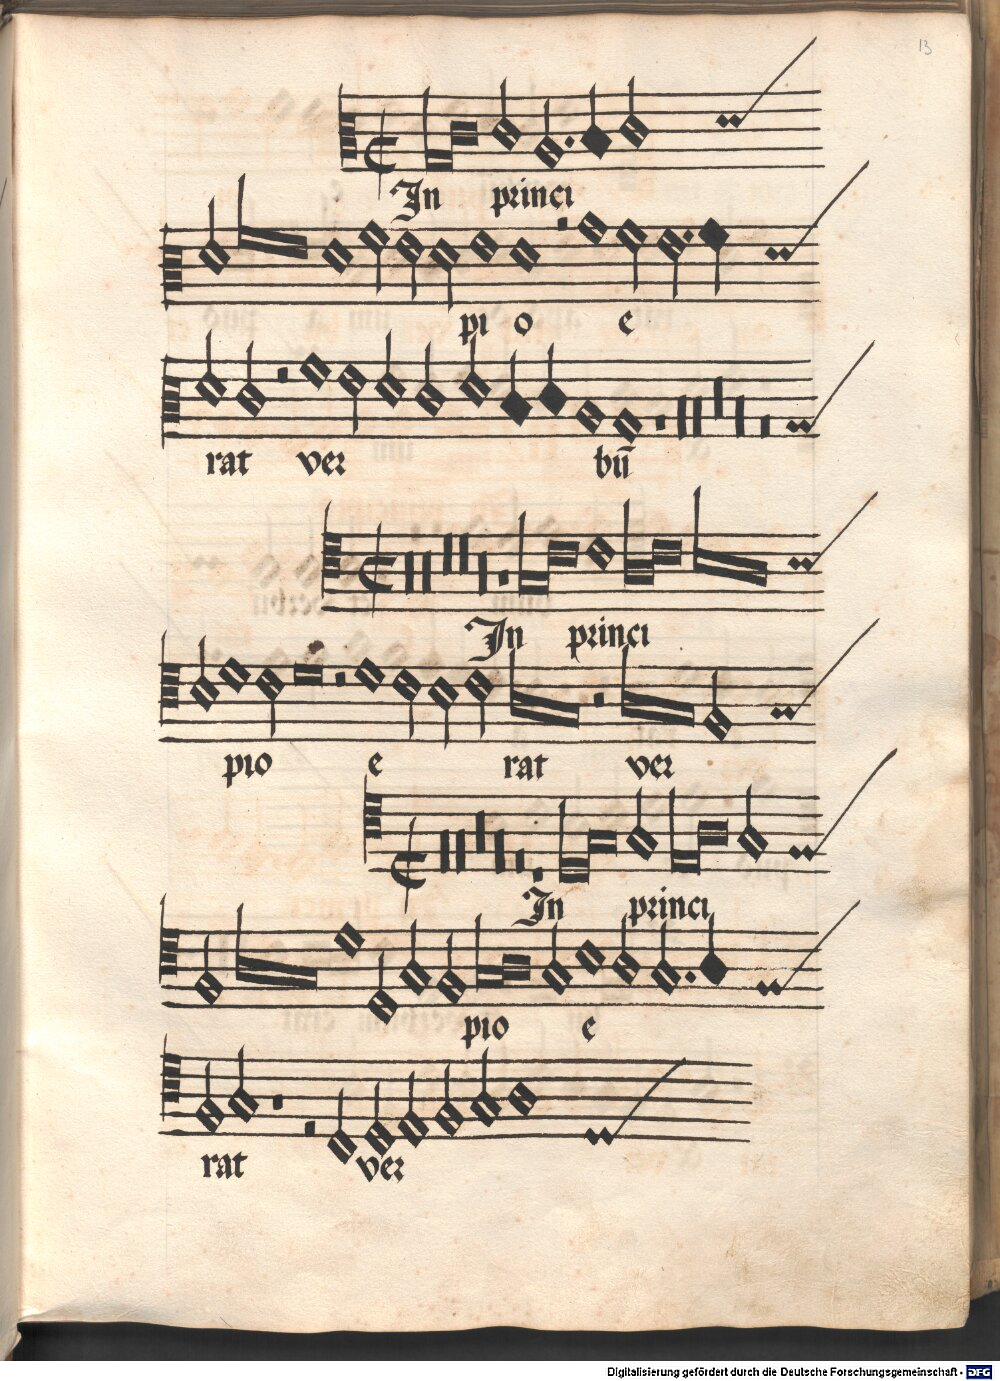 13
In princi
pi o e
rat ver bū
In princi
pio e rat ver
In princi
pio e
rat ver
Digitalisierung gefördert durch die Deutsche Forschungsgemeinschaft - DFG